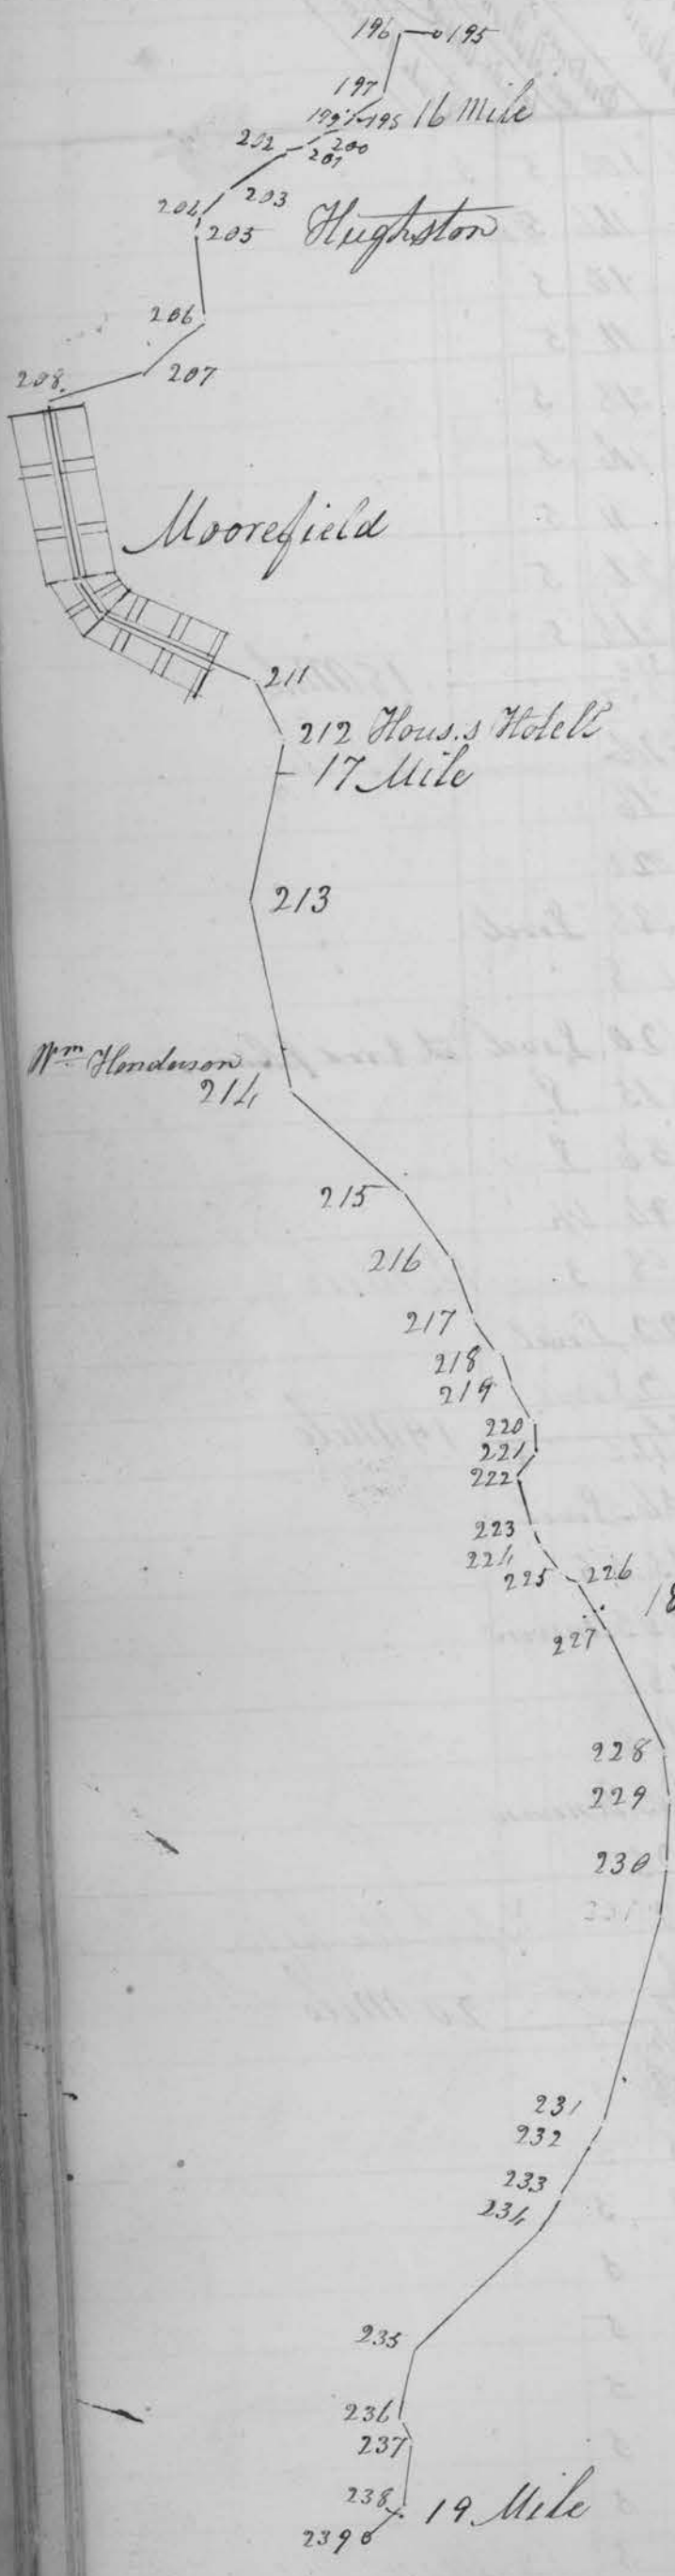 196 195
197
199 195 16 Mile
202 200
201
203
204
205 Hughston
206
208. 207
Moorefield
211
212 Hous.s Hotell
17 Mile
213
Wm Henderson
214
215
216
217
218
219
220
221
222
223
224
225 226
18
227
228
229
230
231
232
233
234
235
236
237
238 19 Mile
239